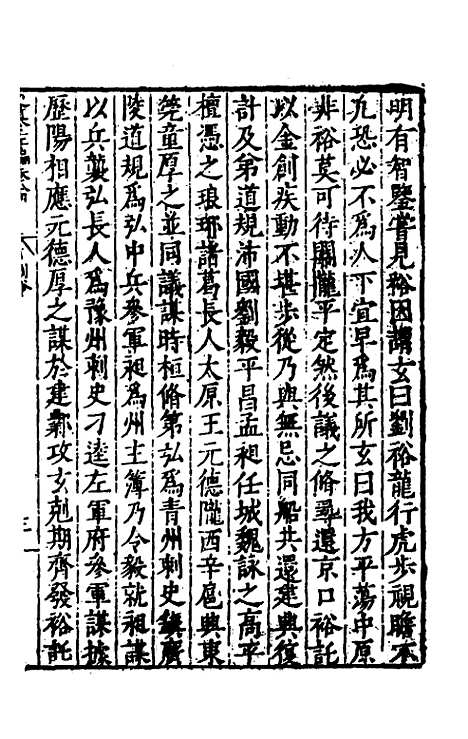 明有智鑒嘗見裕因謂玄曰劉裕龍行虎步視瞻不
九恐必不為人下宜早為其所玄曰我方平蕩中原
非裕莫可待關隴平定然後議之脩尋還京口裕託
以金創疾動不堪步從乃與無忌同船共還建興復
計及弟道規沛國劉毅平昌孟昶任城魏詠之高平
檀憑之琅琊諸葛長人太原王元德隴西辛扈興東
莞童厚之並同議謀時桓脩弟弘為青州刺史鎮廣
陵道規為弘中兵參軍昶為州主簿乃令毅就昶謀
以兵襲弘長人為豫州刺史刁逵左軍府參軍謀據
歷陽相應元德厚之謀於建鄴攻玄剋期齊發裕託
三